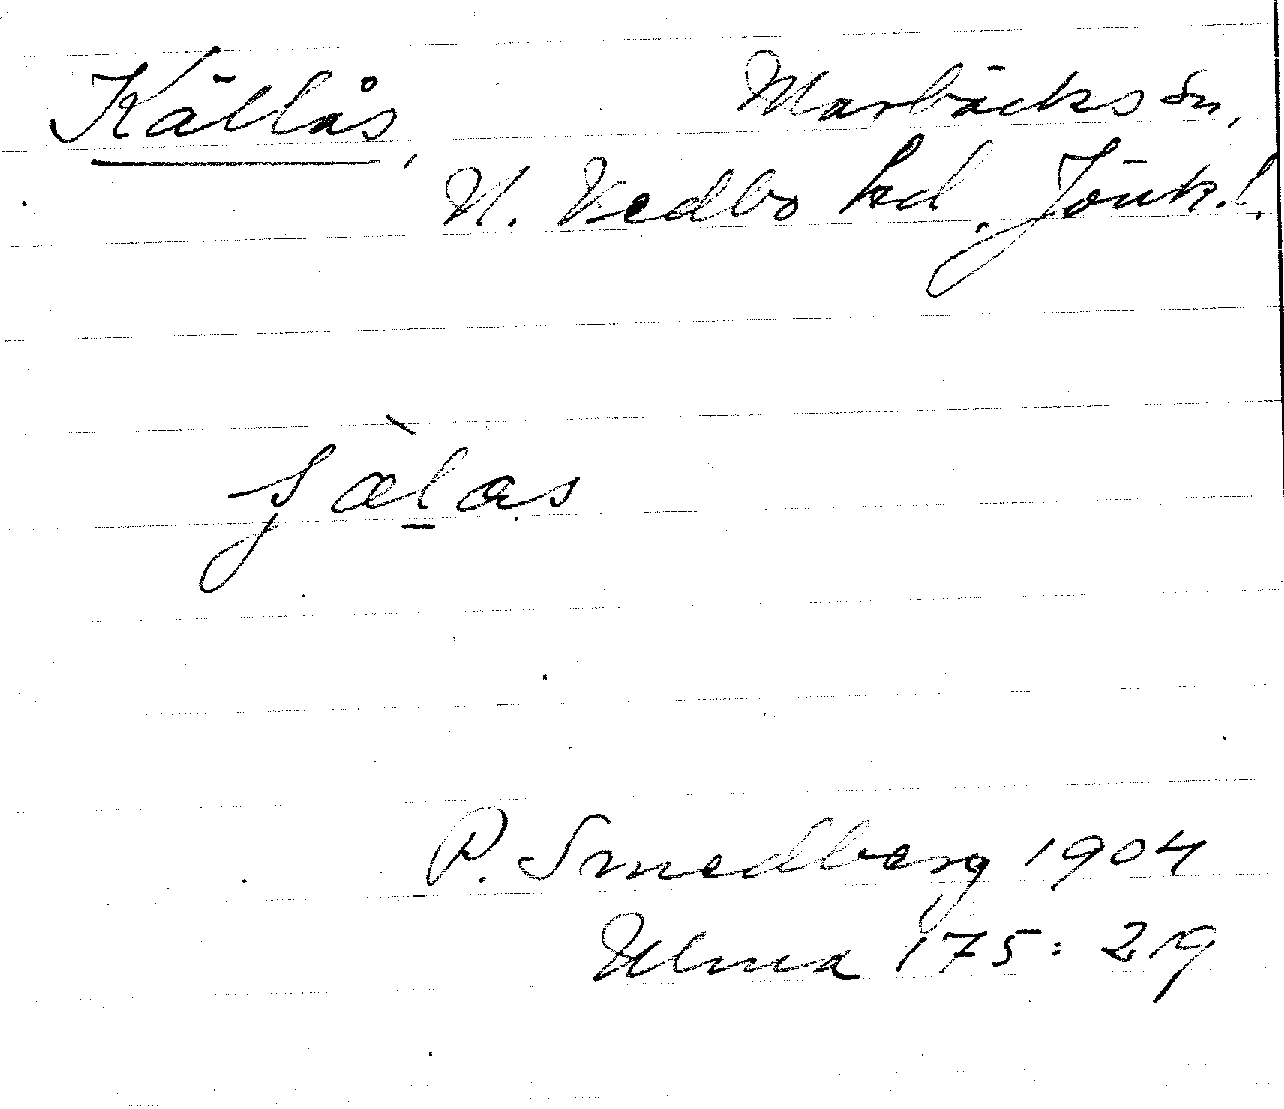 Källås, Marbäcks sn,
N. Vedbo hd, Jönk. l.
P. Smedberg 1904
Ulma 175: 219